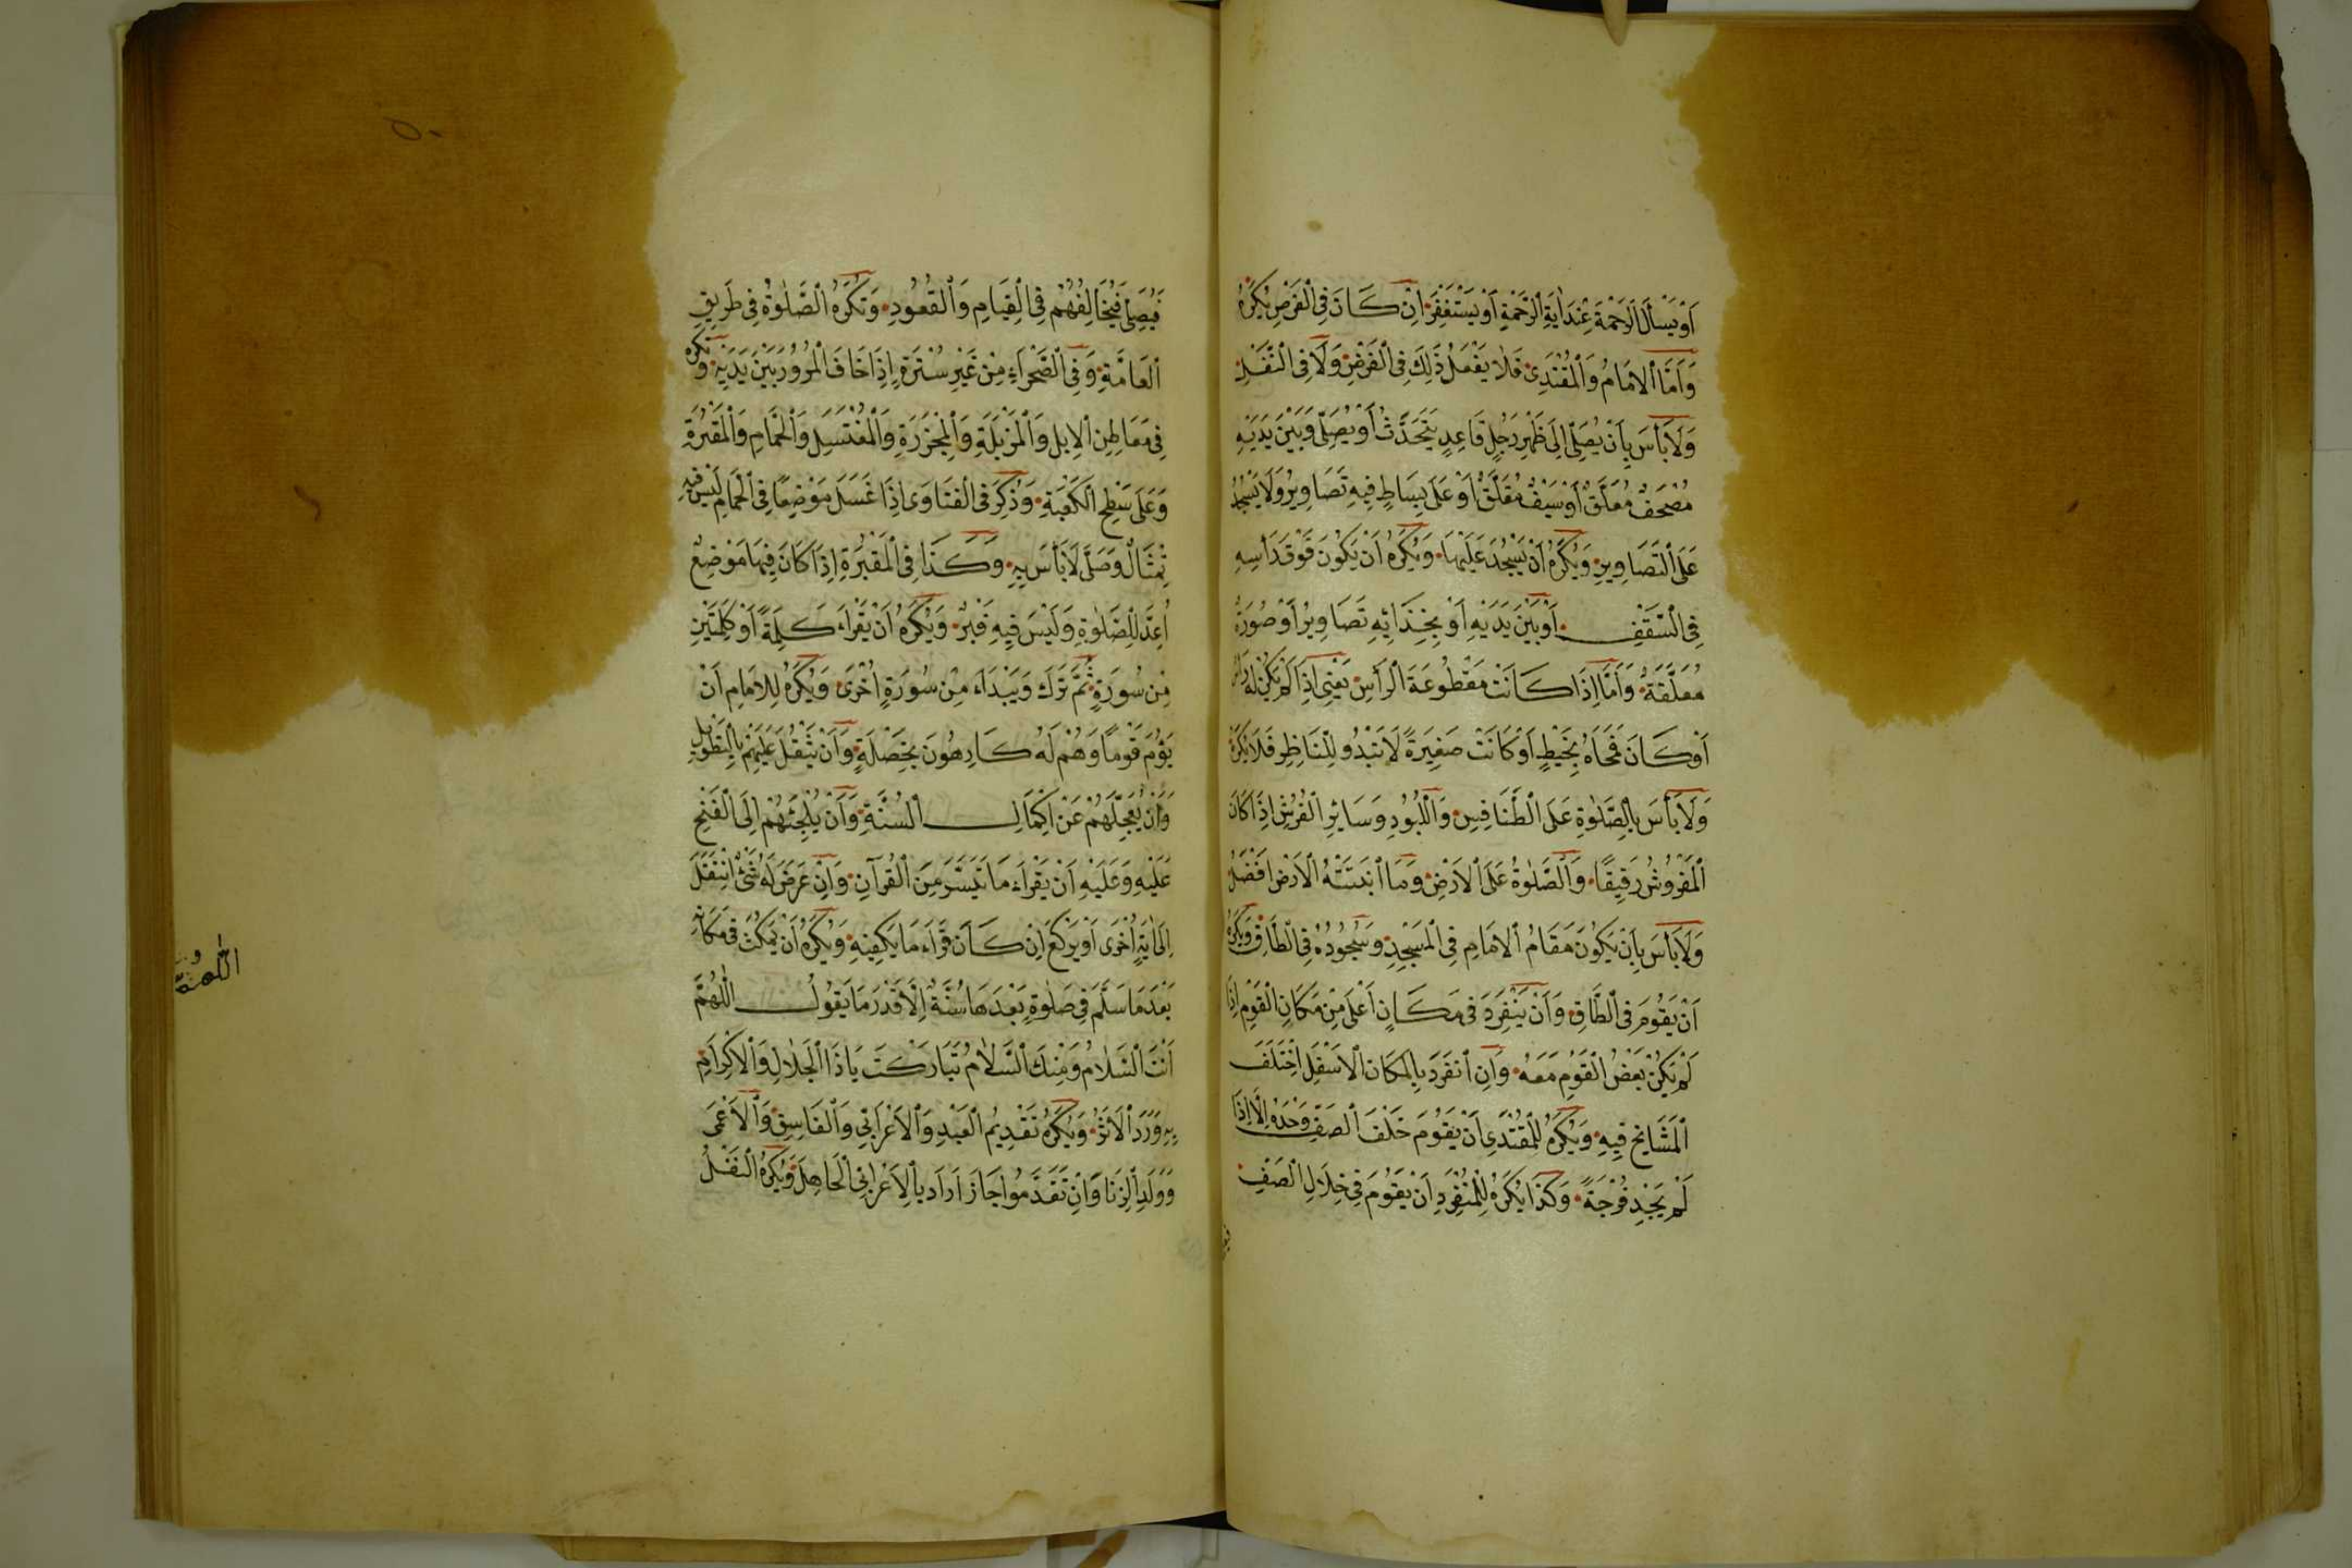 اَوْ يَسْأَلَ الرَّحْمَةَ عِنْدَ اٰيَةِ الرَّحْمَةِ اَوْ يَسْتَغْفِرَ اِنْ كَانَ فِى الْفَرْضِ يُكْرَهُ
وَاَمَّا الْاِمَامُ وَالْمُقْتَدِى فَلَا يَفْعَلُ ذٰلِكَ فِى الْفَرْضِ وَلَا فِى النَّفْلِ
وَلَا بَأْسَ بِاَنْ يُصَلِّىَ اِلَى ظَهْرِ رَجُلٍ قَاعِدٍ يَتَحَدَّثُ اَوْ يُصَلِّى وَبَيْنَ يَدَيْهِ
مُصْحَفٌ مُعَلَّقٌ اَوْ سَيْفٌ مُعَلَّقٌ اَوْ عَلَى بِسَاطٍ فِيهِ تَصَاوِيرُ وَلَا يَسْجُدُ
عَلَى التَّصَاوِيرِ وَيُكْرَهُ اَنْ يَسْجُدَ عَلَيْهَا وَيُكْرَهُ اَنْ يَكُونَ فَوْقَ رَأْسِهِ
فِى السَّقْفِ اَوْ بَيْنَ يَدَيْهِ اَوْ بِحِذَائِهِ تَصَاوِيرُ اَوْ صُورَةٌ
مُعَلَّقَةٌ وَاَمَّا اِذَا كَانَتْ مَقْطُوعَةَ الرَّأْسِ يَعْنِى اِذَا لَمْ يَكُنْ لَهُ رَأْسٌ
اَوْ كَانَ فَمَحَاهُ بِخَيْطٍ اَوْ كَانَتْ صَغِيرَةً لَا تَبْدُو لِلنَّاظِرِ فَلَا يُكْرَهُ
وَلَا بَأْسَ بِالصَّلٰوةِ عَلَى الطَّنَافِسِ وَاللُّبُودِ وَسَائِرِ الْفُرُشِ اِذَا كَانَ
الْمَفْرُوشُ رَقِيقًا وَالصَّلٰوةُ عَلَى الْاَرْضِ وَمَا اَنْبَتَتْهُ الْاَرْضُ اَفْضَلُ
وَلَا بَأْسَ بِاَنْ يَكُونَ مَقَامُ الْاِمَامِ فِى الْمَسْجِدِ وَسُجُودُهُ فِى الطَّاقِ وَيُكْرَهُ
اَنْ يَقُومَ فِى الطَّاقِ وَاَنْ يَنْفَرِدَ فِى مَكَانٍ اَعْلَى مِنْ مَكَانِ الْقَوْمِ اِذَا
لَمْ يَكُنْ بَعْضُ الْقَوْمِ مَعَهُ وَاِنِ انْفَرَدَ بِالْمَكَانِ الْاَسْفَلِ اِخْتَلَفَ
الْمَشَايِخُ فِيهِ وَيُكْرَهُ لِلْمُقْتَدِى اَنْ يَقُومَ خَلْفَ الصَّفِّ وَحْدَهُ اِلَّا اِذَا
لَمْ يَجِدْ فُرْجَةً وَكَذَا يُكْرَهُ لِلْمُنْفَرِدِ اَنْ يَقُومَ فِى خِلَالِ الصَّفِّ
فَيُصَلِّى فَيُخَالِفُهُمْ فِى الْقِيَامِ وَالْقُعُودِ وَتُكْرَهُ الصَّلٰوةُ فِى طَرِيقِ
الْعَامَّةِ وَفِى الصَّحْرَاءِ مِنْ غَيْرِ سُتْرَةٍ اِذَا خَافَ الْمُرُورَ بَيْنَ يَدَيْهِ وَتُكْرَهُ
فِى مَعَاطِنِ الْاِبِلِ وَالْمَزْبَلَةِ وَالْمَجْزَرَةِ وَالْمُغْتَسَلِ وَالْحَمَّامِ وَالْمَقْبَرَةِ
وَعَلَى سَطْحِ الْكَعْبَةِ وَذُكِرَ فِى الْفَتَاوَى اِذَا غَسَلَ مَوْضِعًا فِى الْحَمَّامِ لَيْسَ فِيهِ
تِمْثَالٌ وَصَلَّى لَا بَأْسَ بِهِ وَكَذَا فِى الْمَقْبَرَةِ اِذَا كَانَ فِيهَا مَوْضِعٌ
اُعِدَّ لِلصَّلٰوةِ وَلَيْسَ فِيهِ قَبْرٌ وَيُكْرَهُ اَنْ يَقْرَاءَ كَلِمَةً اَوْ كَلِمَتَيْنِ
مِنْ سُورَةٍ ثُمَّ تَرَكَ وَيَبْدَاءَ مِنْ سُورَةٍ اُخْرَى وَيُكْرَهُ لِلْاِمَامِ اَنْ
يَؤُمَّ قَوْمًا وَهُمْ لَهُ كَارِهُونَ بِخَصْلَةٍ وَاَنْ يُثَقِّلَ عَلَيْهِمْ بِالتَّطْوِيلِ
وَاَنْ يُعَجِّلَهُمْ عَنْ اِكْمَالِ السُّنَّةِ وَاَنْ يُلْجِئَهُمْ اِلَى الْفَتْحِ
عَلَيْهِ وَعَلَيْهِ اَنْ يَقْرَاءَ مَا تَيَسَّرَ مِنَ الْقُرْآنِ وَاِنْ عَرَضَ لَهُ شَىْءٌ انْتَقَلَ
اِلَى اٰيَةٍ اُخْرَى اَوْ يَرْكَعَ اِنْ كَانَ قَرَاءَ مَا يَكْفِيهِ وَيُكْرَهُ اَنْ يَمْكُثَ فِى مَكَانِهِ
بَعْدَ مَا سَلَّمَ فِى صَلٰوةٍ بَعْدَهَا سُنَّةٌ اِلَّا قَدْرَ مَا يَقُولُ اللّٰهُمَّ
اَنْتَ السَّلَامُ وَمِنْكَ السَّلَامُ تَبَارَكْتَ يَا ذَا الْجَلَالِ وَالْاِكْرَامِ
بِهِ وَرَدَ الْاَثَرُ وَيُكْرَهُ تَقْدِيمُ الْعَبْدِ وَالْاَعْرَابِىِّ وَالْفَاسِقِ وَالْاَعْمَى
وَوَلَدِ الزِّنَا وَاِنْ تَقَدَّمُوا جَازَ اَرَادَ بِالْاَعْرَابِىِّ الْجَاهِلَ وَيُكْرَهُ النَّفْلُ